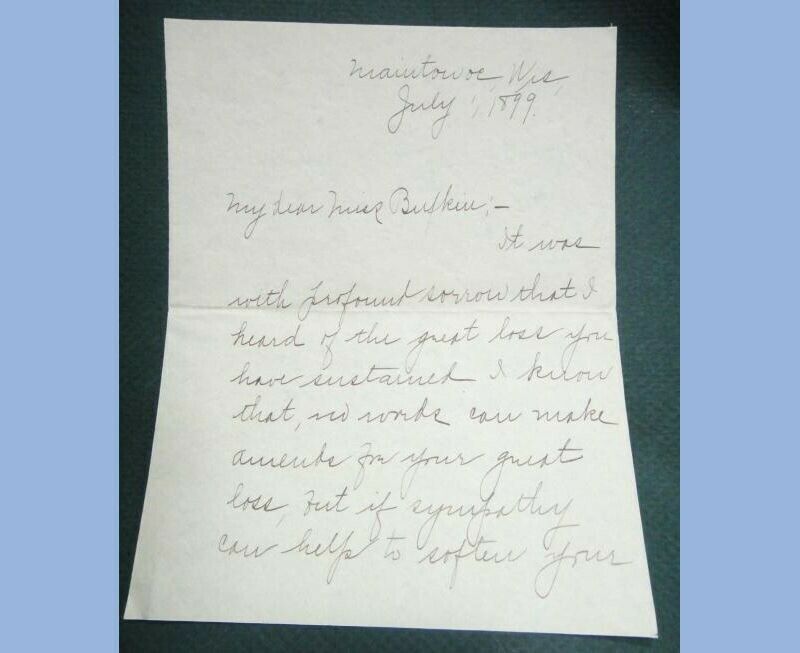 Manitowoc, Wis,
July 1, 1899.
My dear Miss Bufkin;-
It was
with profound sorrow that I
heard of the great loss you
have sustained I know
that, no words can make
amends for your great
loss, but if sympathy
can help to soften your